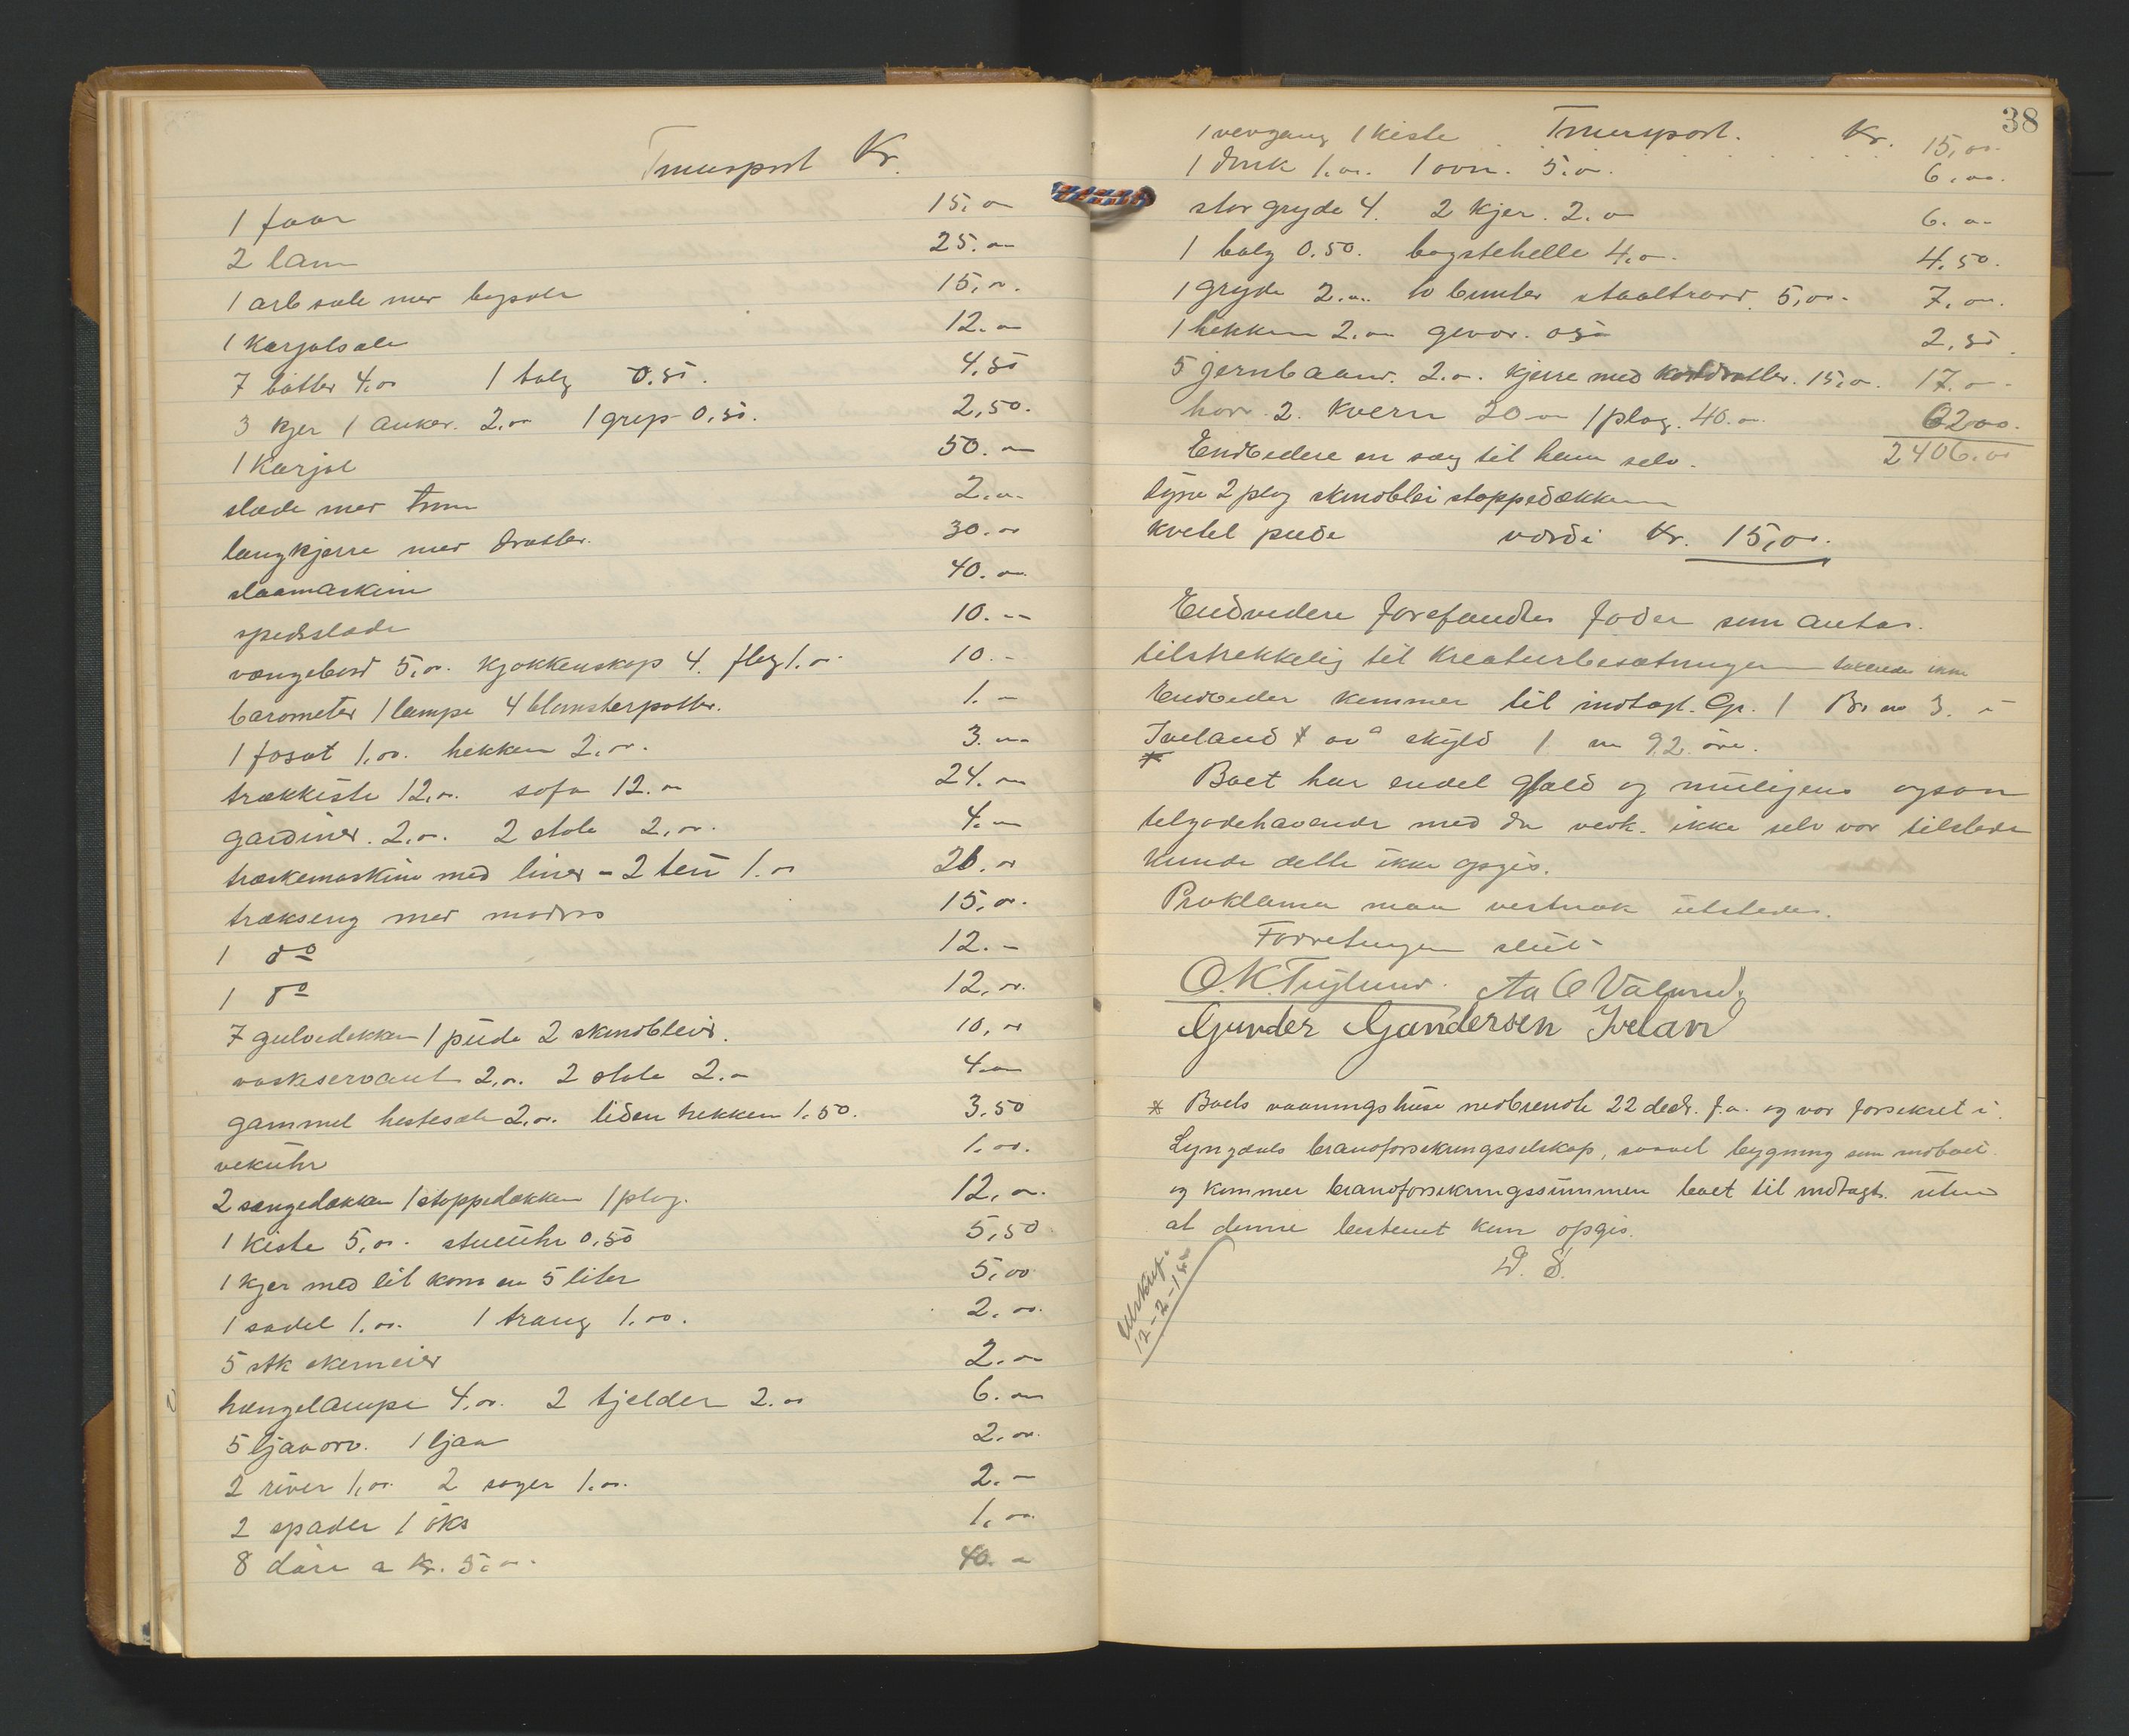 Transport Kr.
1 faar 15.00
2 lam 25.00
1 arb sale med bogsæler 15.00.
1 Karjolsale 12.00
7 bøtter 4.00 1 balg 0.50. 4.50
3 kjer 1 anker. 2.00 1 grep 0.50. 2,50.
1 Karjol 50.00
slæde med 2.00
langkjerre med drætter. 30.00
slaamaskine 40.00
spedslæde 10.00
vængebord 5.00. kjøkkenskap 4. 1.00. 10.-
barometer 1 lampe 4 blomsterpotter. 1.-
1 fosat 1.00. hekken 2.00. 3.00
trækkiste 12.00. sofa 12.00 24.00
gardiner. 2.00. 2 stole 2.00. 4.00
træskemaskine med liner - 2 1.00 26.00
trækseng med madras 15.00.
1 do 12.-
1 do 12.00.
7 gulvedækken 1 püde 2 10.00
vaskeservant 2.00. 2 stole 2.00 4.00
gammel hestesale 2.00. liden hekken 1.50. 3.50
vekühr 1.00.
2 sengedækken 1 stoppedækken 1 plag. 12.00.
1 kiste 5.00. stueühr 0.50 5,50
1 kjer med lit korn en 5 liter 5,00
1 sadel 1.00. 1 traug 1.00. 2.00.
5 stk skerneier 2.00
hængelampe 4.00. 2 tjelder 2.00 6.00
5 ljaaorv. 1 ljaa 2.00.
2 river 1.00 2 sager 1.00. 2.-
2 spader 1 øks 1.00.
8 a Kr. 5.00. 40.00
38
1 vevgang 1 kiste Transport. Kr. 15,00.
1 1.00. 1 ovn. 5.00. 6.00.
stor gryde 4. 2 kjer. 2.00 6.00
1 balg 0.50. bagstehelle 4.00. 4.50.
1 gryde 2.00. to bunter staaltraad. 5,00. 7.00.
1 hekken 2.00 0.50 2,50.
5 jernbaand. 2.00. kjerre med drætter. 15.00. 17.00.
harv 2. kvern 20.00 1 plog. 40.00. 62.00.
Endvidere en sæng til ham selv. 2406.00
dyne 2 plag stoppedækken
kvetel pude værdi Kr. 15,00.
Endvidere forefandtes foder som antas.
tilstrekkelig til kreaturbesætningen ikke
Endvider kommer til indtægt. Gr. 1 Br. no 3. i
Iveland * av skyld 1 m 92 øre.
* Boet har endel gjæld og müligens ogsaa
tilgodehavende med da vedk. ikke selv var tilstede
kunde dette ikke opgis.
Proklama maa vestnok utstedes.
Forretningen slüt
O. K. Tveitlund. Aa O Vatland.
Gunder Gundersen Iveland
* Boets vaaningshüse nedbrendte 22 decbr. f.a. og var forsekret i
Lyngdals brandforsekringsselskap, saavel bygning som indboet.
og kommer brandforsekringssümmen boet til indtægt. üten
at denne bestemt kan opgis.
D. S.
Utskrift.
12-2-18